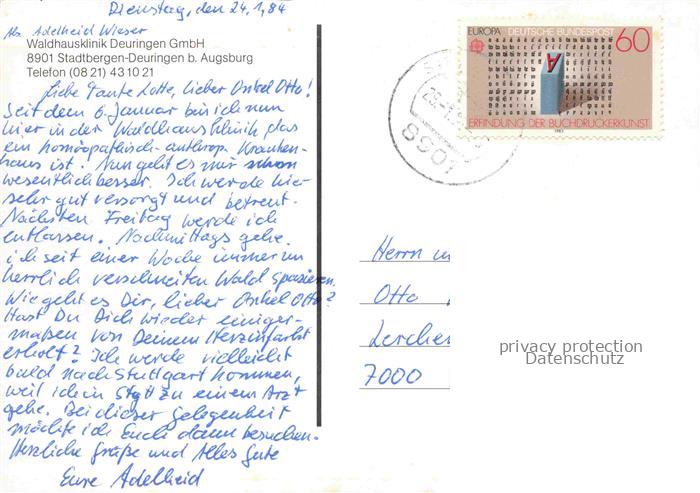 Dienstag, den 24.1.84
Abs. Adelheid Wieser
Waldhausklinik Deuringen GmbH
8901 Stadtbergen-Deuringen b. Augsburg
Telefon (08 21) 43 10 21
Liebe Tante Lotte, lieber Onkel Otto!
Seit dem 6. Januar bin ich nun
hier in der Waldhausklinik, das
ein homöopathisch-anthrop. Kranken-
haus ist. Nun geht es mir schon
wesentlich besser. Ich werde hier
sehr gut versorgt und betreut.
Nächsten Freitag werde ich
entlassen. Nachmittags gehe
ich seit einer Woche immer im
herrlich verschneiten Wald spazieren.
Wie geht es Dir, lieber Onkel Otto?
Hast Du Dich wieder einiger-
maßen von Deinem Herzinfarkt
erholt? Ich werde vielleicht
bald nach Stuttgart kommen,
weil ich in Stgt zu einem Arzt
gehe. Bei dieser Gelegenheit
möchte ich Euch dann besuchen.
Herzliche Grüße und Alles Gute
Eure Adelheid
EUROPA DEUTSCHE BUNDESPOST 60
A
ERFINDUNG DER BUCHDRUCKERKUNST
1983
8901
Herrn
Otto
Lerchen
7000
privacy protection
Datenschutz